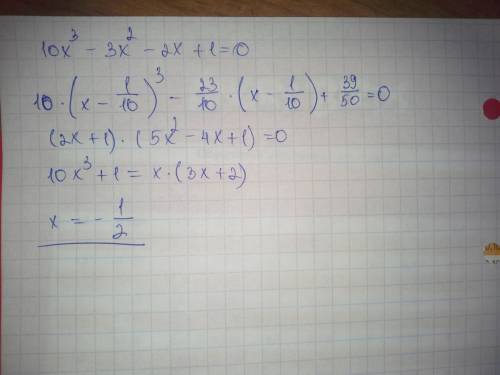 10x³ - 3x² - 2x + 1 = 0
10·(x - 1/10)³ - 23/10·(x - 1/10) + 39/50 = 0
(2x+1)·(5x² - 4x + 1) = 0
10x³ + 1 = x·(3x + 2)
x = - 1/2